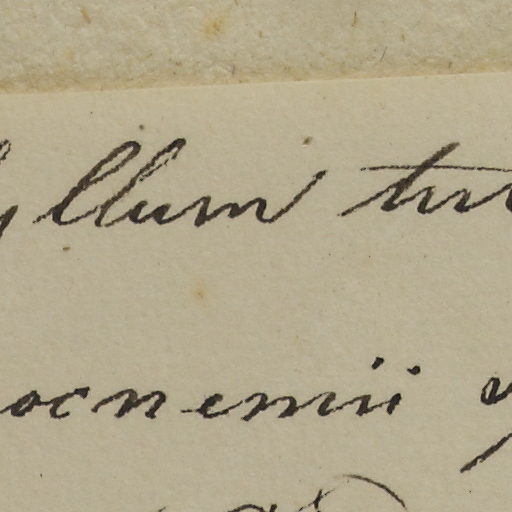 yllum tu
ocnemii